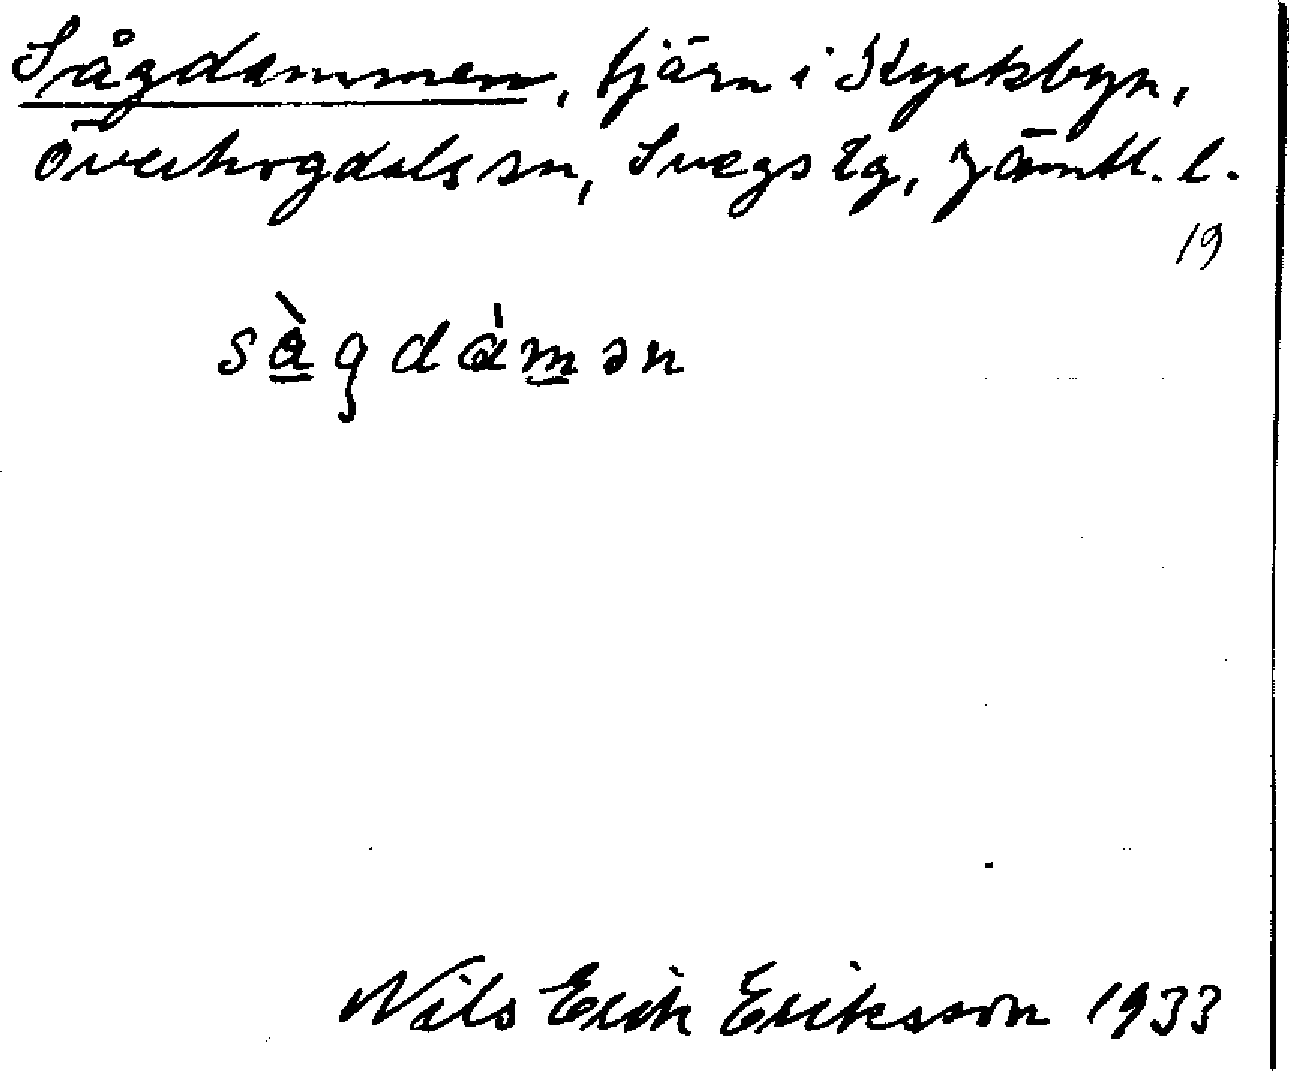 Sågdammen, tjärn i Kyckbyn,
Överhogdals sn, Svegs tg, Jämtl. l.
19
så̀gdàmən
Nils Erik Eriksson 1933